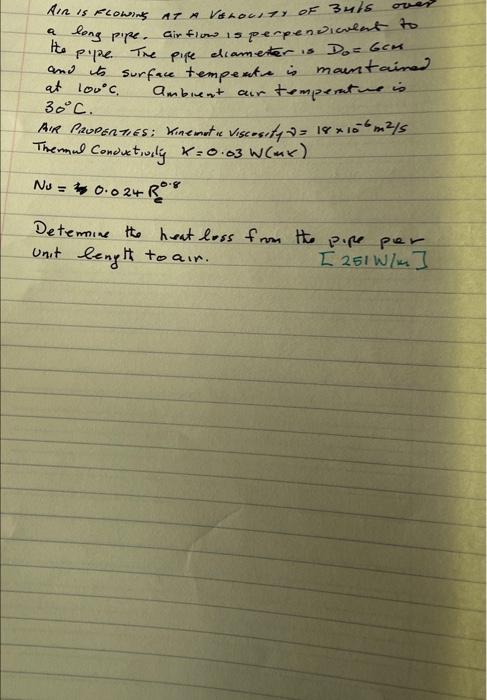 AIR IS FLOWING AT A VELOCITY OF 3m/s over
a long pipe. air flow is perpendiculent to
the pipe. The pipe diameter is Do = 6cm
and its surface temperate is maintained
at 100°C. Ambient air temperature is
30°C.
AIR PROPERTIES: Kinematic Viscosity ν = 18 × 10⁻⁶ m²/s
Thermal Conductivity K = 0.03 W(mK)
Nu = 0.024 Re^0.8
Determine the heat loss from the pipe per
unit lenght to air. [251 W/m]